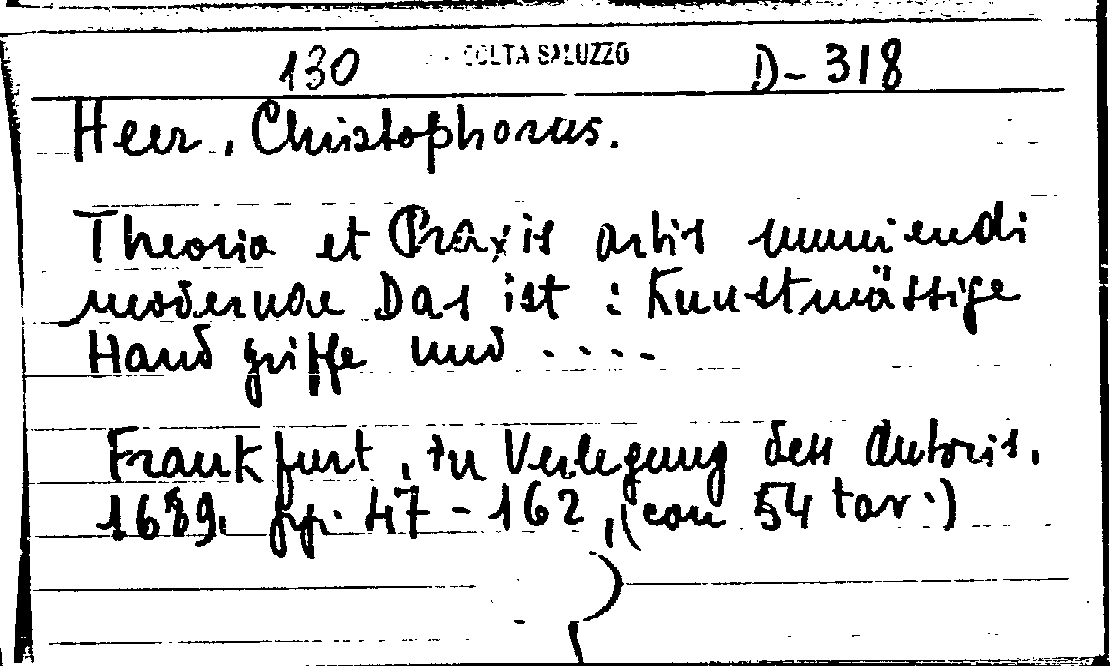 130 COLTA SALUZZO D-318
Heer, Christophorus.
Theoria et Praxis artis muniendi
modernae Das ist : Kunstmässige
Handgriffe und ....
Frankfurt, in Verlegung dess Autoris.
1689, pp. 47-162, (con 54 tav.)